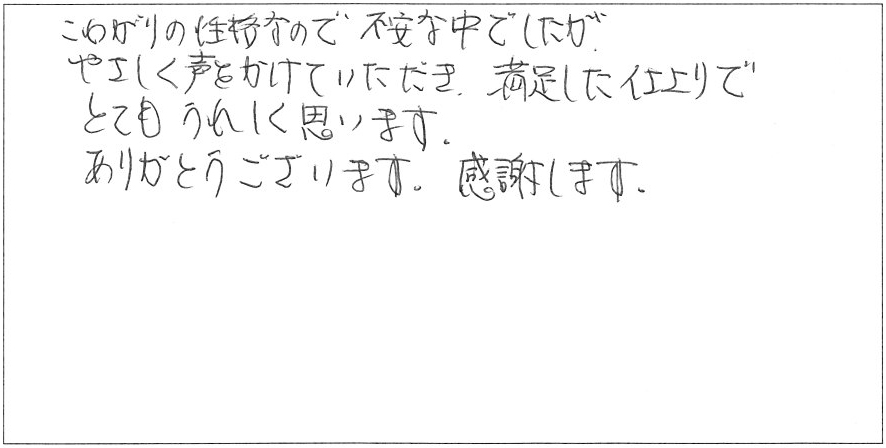 こわがりの性格なので不安な中でしたが、
やさしく声をかけていただき、満足した仕上りで
とてもうれしく思います。
ありがとうございます。感謝します。